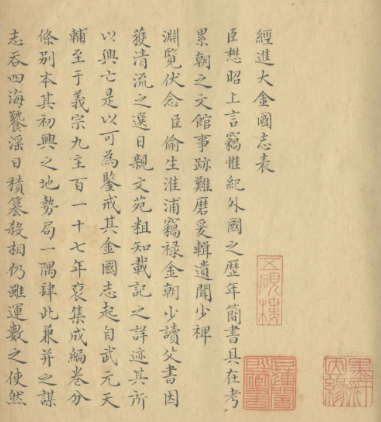 經進大金國志表
臣懋昭上言竊惟紀外國之歷年簡書具在考
累朝之文館事跡難磨爰輯遺聞少裨
淵覽伏念臣偷生淮浦竊祿金朝少讀父書因
獲清流之選日親文苑粗知載記之詳迹其所
以興亡是以可為鑒戒其金國志起自武元天
輔至于義宗九主百一十七年裒集成編卷分
條別本其初興之地勢局一隅肆此兼并之謀
志吞四海饕滛日積簒殺相仍雖運數之使然